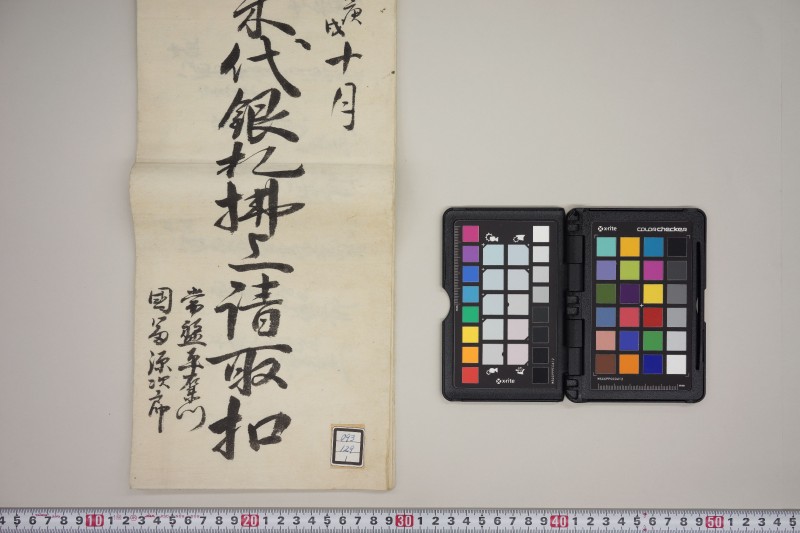 庚戌十月
代銀札拂上請取扣
常盤平右衛門
國富源次郎
093
129
1
x-rite
colorchecker
x-rite
x-rite
4 5 6 7 8 9 10 1 2 3 4 5 6 7 8 9 20 1 2 3 4 5 6 7 8 9 30 1 2 3 4 5 6 7 8 9 40 1 2 3 4 5 6 7 8 9 50 1 2 3 4 5